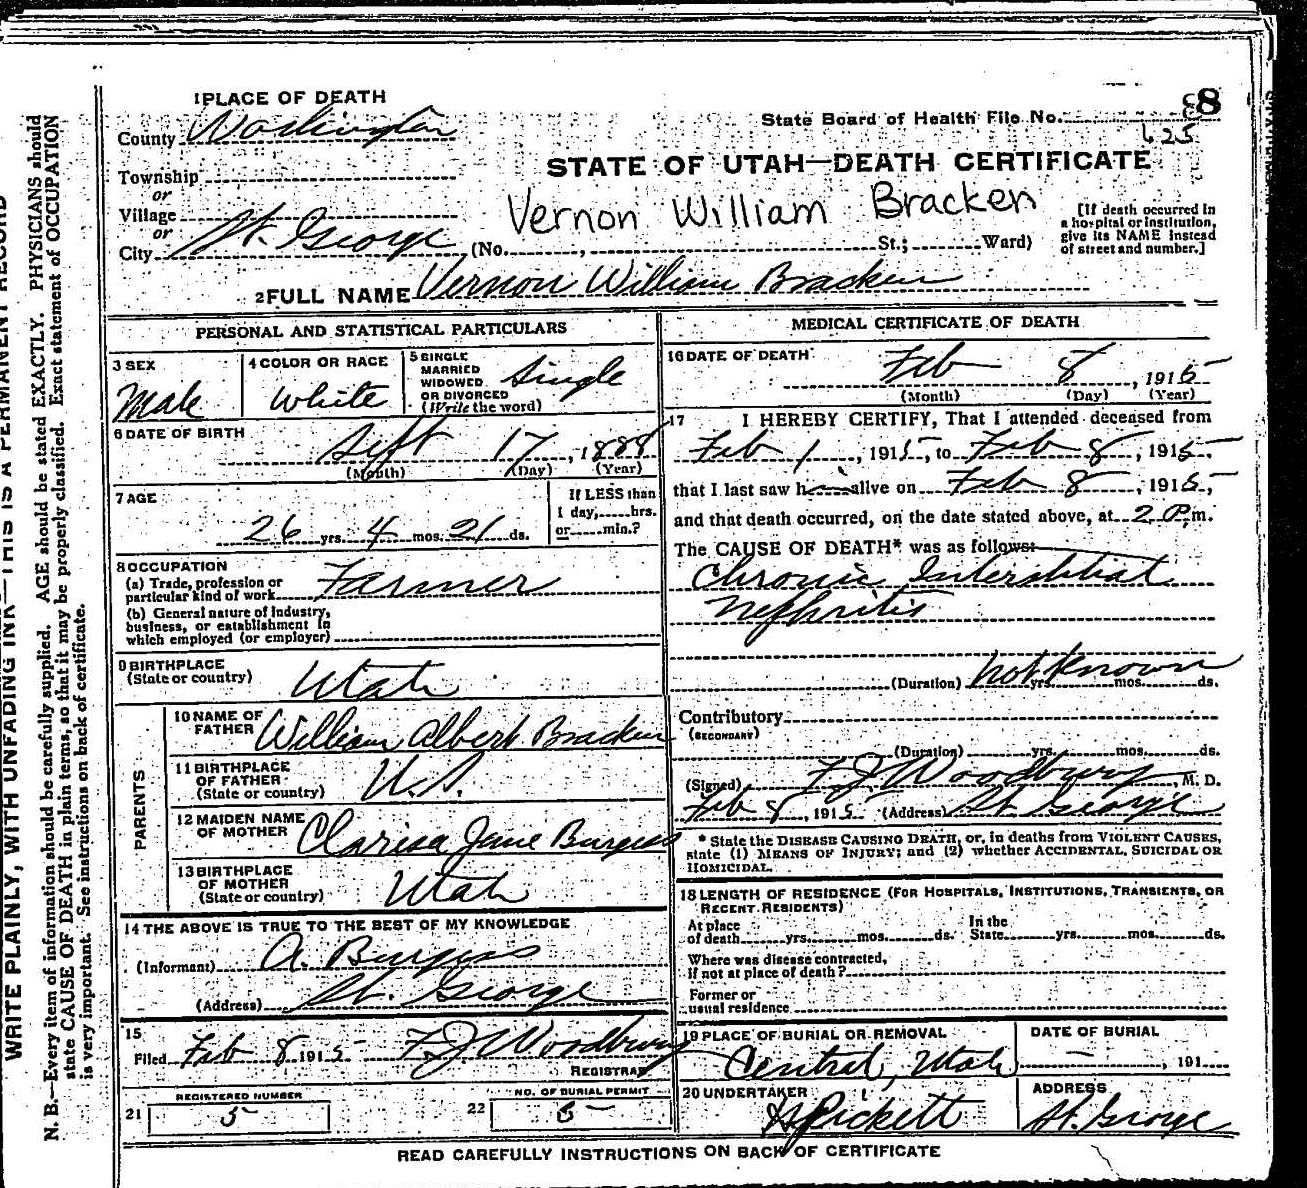 1 PLACE OF DEATH
County Washington
State Board of Health File No.
8
625
STATE OF UTAH—DEATH CERTIFICATE
Township
or
Village
or
City St. George
Vernon William Bracken
(No. , St.; Ward)
[If death occurred in
a hospital or institution,
give its NAME instead
of street and number.]
2 FULL NAME Vernon William Bracken
PERSONAL AND STATISTICAL PARTICULARS
3 SEX
Male
4 COLOR OR RACE
White
5 SINGLE
MARRIED
WIDOWED
OR DIVORCED
(Write the word)
Single
6 DATE OF BIRTH
Sept 17, 1888
(Month) (Day) (Year)
7 AGE
26 yrs. 4 mos. 21 ds.
If LESS than
1 day, hrs.
or min.?
8 OCCUPATION
(a) Trade, profession or
particular kind of work Farmer
(b) General nature of industry,
business, or establishment in
which employed (or employer)
9 BIRTHPLACE
(State or country) Utah
PARENTS
10 NAME OF
FATHER William Albert Bracken
11 BIRTHPLACE
OF FATHER
(State or country) U.S.
12 MAIDEN NAME
OF MOTHER Clarisa Jane Burgess
13 BIRTHPLACE
OF MOTHER
(State or country) Utah
14 THE ABOVE IS TRUE TO THE BEST OF MY KNOWLEDGE
(Informant) A. Burgess
(Address) St. George
15
Filed Feb 8 1915 F. J. Woodbury
REGISTRAR
REGISTERED NUMBER
21 5
NO. OF BURIAL PERMIT
22 5
MEDICAL CERTIFICATE OF DEATH
16 DATE OF DEATH
Feb 8, 1915
(Month) (Day) (Year)
17 I HEREBY CERTIFY, That I attended deceased from
Feb 1, 1915, to Feb 8, 1915,
that I last saw him alive on Feb 8, 1915,
and that death occurred, on the date stated above, at 2 P.m.
The CAUSE OF DEATH* was as follows:
Chronic Interstitial
Nephritis
(Duration) not Known yrs. mos. ds.
Contributory
(SECONDARY)
(Duration) yrs. mos. ds.
(Signed) F J Woodbury, M. D.
Feb 8, 1915 (Address) St. George
* State the DISEASE CAUSING DEATH, or, in deaths from VIOLENT CAUSES,
state (1) MEANS OF INJURY; and (2) whether ACCIDENTAL, SUICIDAL OR
HOMICIDAL.
18 LENGTH OF RESIDENCE (FOR HOSPITALS, INSTITUTIONS, TRANSIENTS, OR
RECENT RESIDENTS)
At place
of death yrs. mos. ds.
In the
State yrs. mos. ds.
Where was disease contracted,
if not at place of death?
Former or
usual residence
19 PLACE OF BURIAL OR REMOVAL
Central, Utah
DATE OF BURIAL
— , 191
20 UNDERTAKER
Pickett
ADDRESS
St. George
READ CAREFULLY INSTRUCTIONS ON BACK OF CERTIFICATE
WRITE PLAINLY, WITH UNFADING INK—THIS IS A PERMANENT RECORD
N. B.—Every item of information should be carefully supplied. AGE should be stated EXACTLY. PHYSICIANS should
state CAUSE OF DEATH in plain terms, so that it may be properly classified. Exact statement of OCCUPATION
is very important. See instructions on back of certificate.